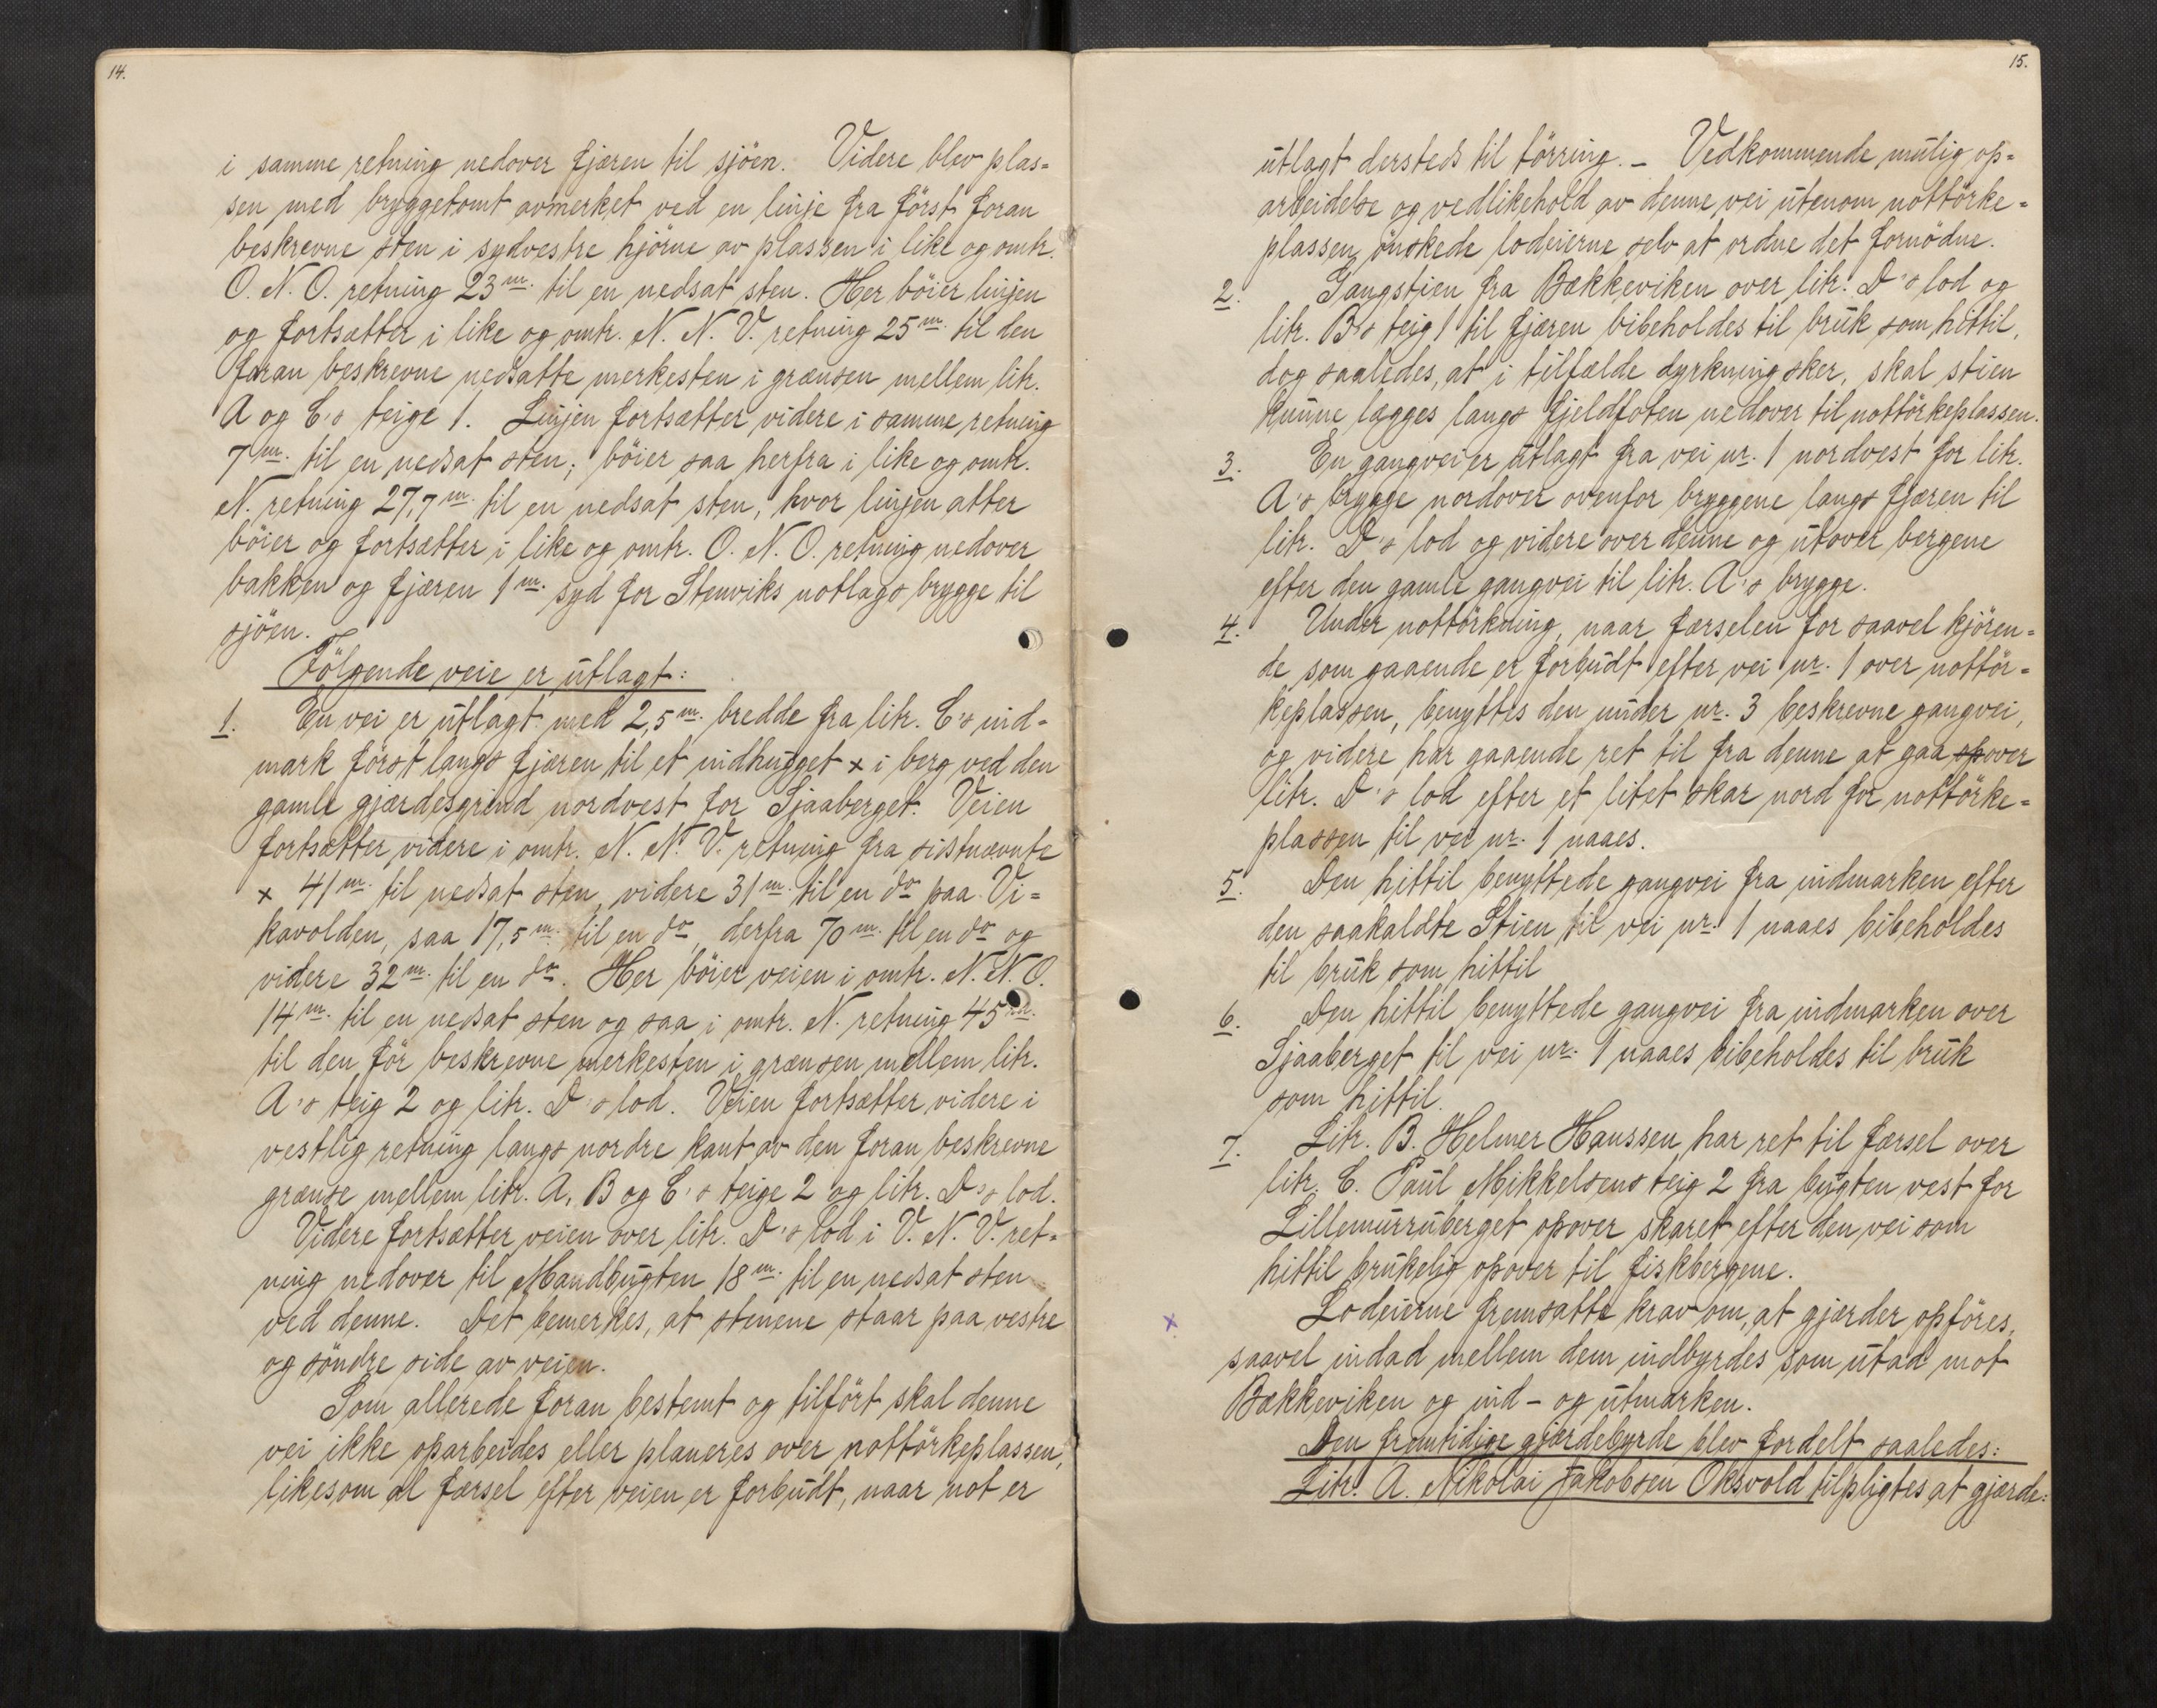 14.
i samme retning nedover fjæren til sjöen. Videre blev plas=
sen med bryggetomt avmerket ved en linje fra först foran
beskrevne sten i sydvestre hjörne av plassen i like og omtr.
O. N. O. retning 23 m. til en nedsat sten. Her böier linjen
og fortsætter i like og omtr. N. N. V. retning 25 m. til den
foran beskrevne nedsatte merkesten i grænsen mellem litr.
A og C's teige 1. Linjen fortsætter videre i samme retning
7 m. til en nedsat sten; böier saa herfra i like og omtr.
N. retning 27,7 m. til en nedsat sten, hvor linjen atter
böier og fortsætter i like og omtr. O. N. O. retning nedover
bakken og fjæren 1 m. syd for Stenviks notlags brygge til
sjöen.
Fölgende veie er utlagt:
1. En vei er utlagt med 2,5 m. bredde fra litr. C's ind=
mark först langs fjæren til et indhugget x i berg ved den
gamle gjærdesgrind nordvest for Sjaaberget. Veien
fortsætter videre i omtr. N. N. V. retning fra sistnævnte
x 41 m. til nedsat sten, videre 31 m. til en do paa Vi=
kavolden, saa 17,5 m. til en do, derfra 70 m. til en do og
videre 32 m. til en do. Her böier veien i omtr. N. N. O.
14 m. til en nedsat sten og saa i omtr. N. retning 45 m.
til den för beskrevne merkesten i grænsen mellem litr.
A's teig 2 og litr. D's lod. Veien fortsætter videre i
vestlig retning langs nordre kant av den foran beskrevne
grænse mellem litr. A, B og C's teige 2 og litr. D's lod.
Videre fortsætter veien over litr. D's lod i V. N. V. ret=
ning nedover til Mandbugten 18 m. til en nedsat sten
ved denne. Det bemerkes, at stenene staar paa vestre
og söndre side av veien.
Som allerede foran bestemt og tilfört skal denne
vei ikke oparbeides eller planeres over nottörkeplassen,
likesom al færsel efter veien er forbudt, naar not er
15.
utlagt dersteds til törring. – Vedkommende mulig op=
arbeidelse og vedlikehold av denne vei utenom nottörke=
plassen önskede lodeierne selv at ordne det fornödne.
2. Gangstien fra Bækkeviken over litr. D's lod og
litr. B's teig 1 til fjæren bibeholdes til bruk som hittil,
dog saaledes, at i tilfælde dyrkning sker, skal stien
kunne lægges langs fjeldfoten nedover til nottörkeplassen.
3. En gangvei er utlagt fra vei nr. 1 nordvest for litr.
A's brygge nordover ovenfor bryggene langs fjæren til
litr. D's lod og videre over denne og utover bergene
efter den gamle gangvei til litr. A's brygge.
4. Under nottörkning, naar færselen for saavel kjören=
de som gaaende er forbudt efter vei nr. 1 over nottör=
keplassen, benyttes den under nr. 3 beskrevne gangvei,
og videre har gaaende ret til fra denne at gaa opover
litr. D's lod efter et litet skar nord for nottörke=
plassen til vei nr. 1 naaes.
5. Den hittil benyttede gangvei fra indmarken efter
den saakaldte Stien til vei nr. 1 naaes bibeholdes
til bruk som hittil
6. Den hittil benyttede gangvei fra indmarken over
Sjaaberget til vei nr. 1 naaes bibeholdes til bruk
som hittil.
7. Litr. B. Helmer Hanssen har ret til færsel over
litr. C. Paul Mikkelsens teig 2 fra bugten vest for
Lillemurruberget opover skaret efter den vei som
hittil brukelig opover til fiskbergene.
x Lodeierne fremsatte krav om, at gjærder opföres,
saavel indad mellem dem indbyrdes som utad mot
Bækkeviken og ind – og utmarken.
Den fremtidige gjærdebyrde blev fordelt saaledes:
Litr. A. Nikolai Jakobsen Oksvold tilpligtes at gjærde: